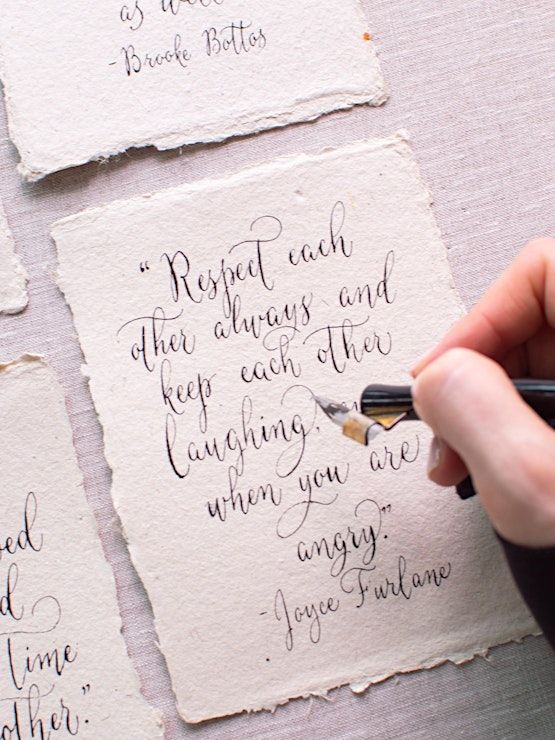 as well
-Brooke Bottos
"Respect each
other always and
keep each other
laughing,
when you are
angry."
-Joyce Furlane
time
other."